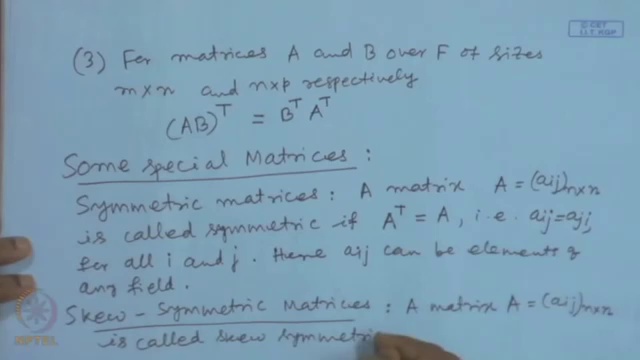 © CET
I.I.T. KGP
(3) For matrices A and B over F of sizes
m×n and n×p respectively
(AB)^T = B^T A^T
Some special Matrices :
Symmetric matrices : A matrix A = (aij)n×n
is called symmetric if A^T = A, i.e. aij = aji,
for all i and j. Here aij can be elements of
any field.
Skew - Symmetric Matrices : A matrix A = (aij)n×n
is called skew symmetri
NPTEL